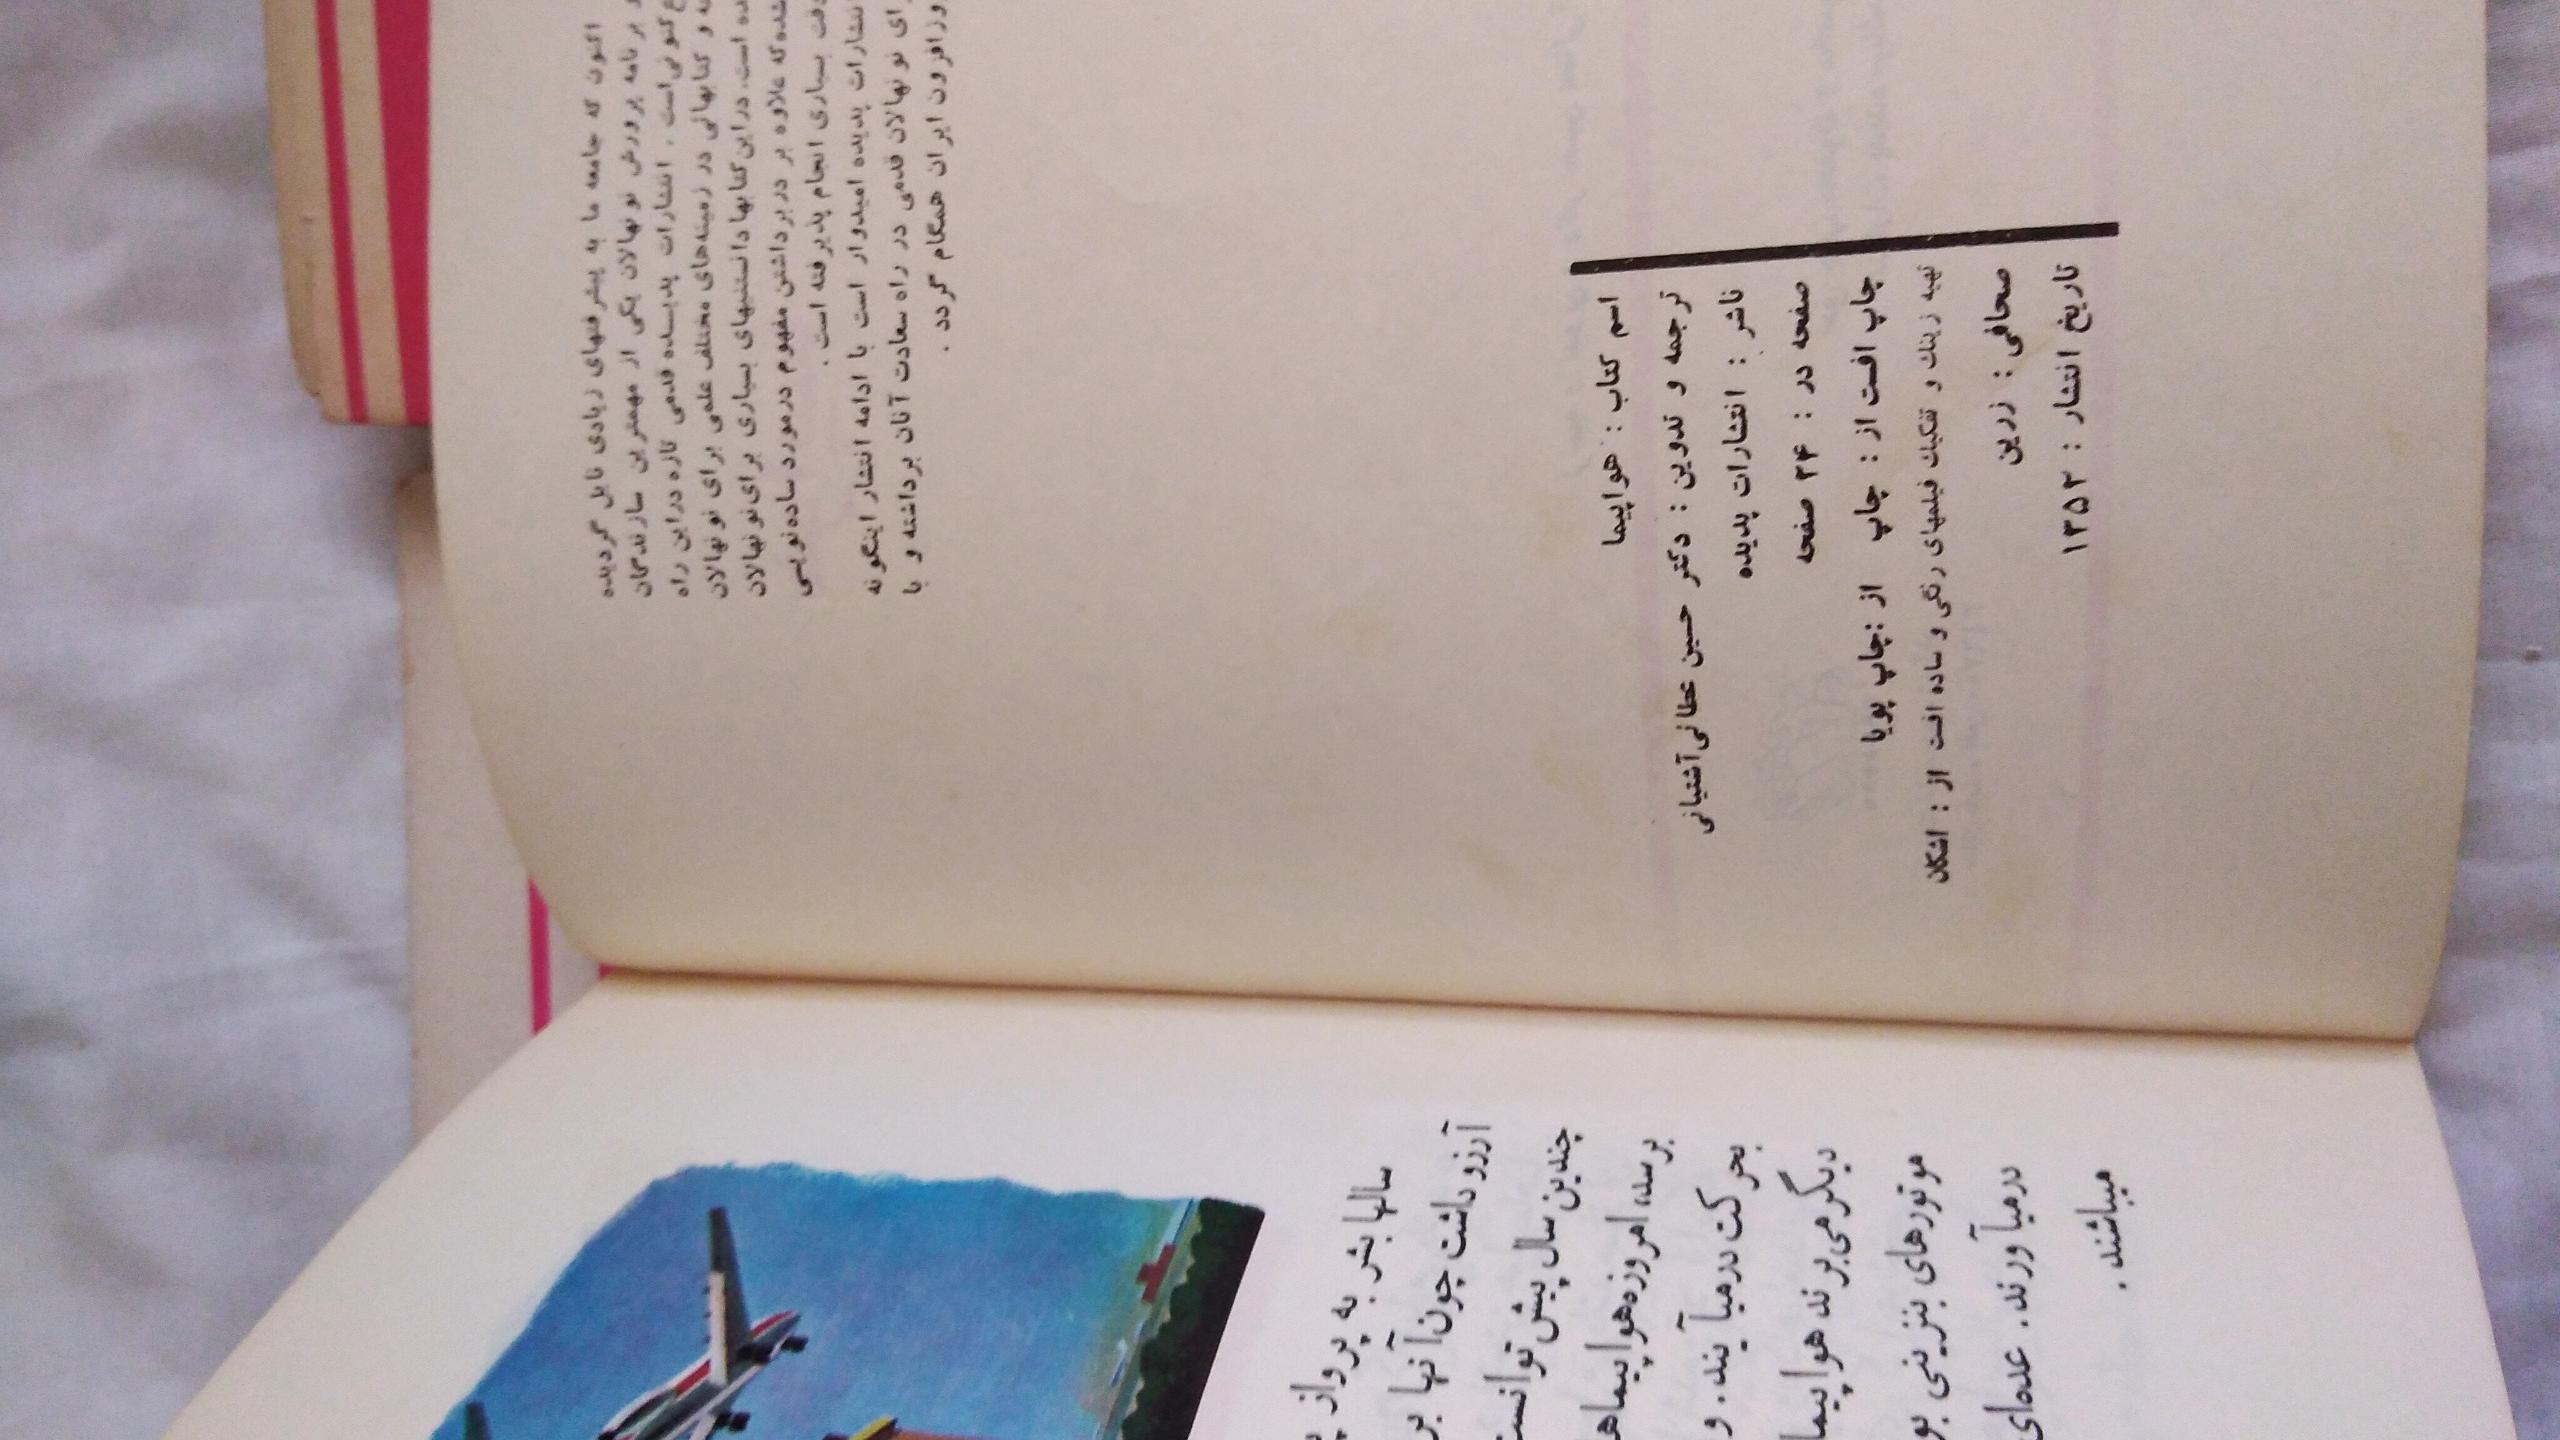 اکنون که جامعه ما به پیشرفتهای زیادی نایل گردیده
و برنامه پرورش نونهالان یکی از مهمترین سازندگان
کنونی است . انتشارات پدیده قدمی تازه دراین راه
و کتابهائی در زمینه‌های مختلف علمی برای نونهالان
ده است. دراین کتابها دانستنیهای بسیاری برای نونهالان
شده که علاوه بر دربرداشتن مفهوم درمورد ساده‌نویسی
دقت بسیاری انجام پذیرفته است .
انتشارات پدیده امیدوار است با ادامه انتشار اینگونه
برای نونهالان قدمی در راه سعادت آنان برداشته و با
روزافزون ایران همگام گردد .
اسم کتاب : هواپیما
ترجمه و تدوین : دکتر حسین عطائی‌آشتیانی
ناشر : انتشارات پدیده
صفحه در : ۲۴ صفحه
چاپ افست از : چاپ از :چاپ پویا
تهیه زینك و تفكیك فیلمهای رنگی و ساده افست از : اشکان
صحافی : زرین
تاریخ انتشار : ۱۳۵۳
سالها بشر. به پرواز
آرزو داشت چون آنها
چندین سال پیش توانست
برسد، امروزه هواپیماها
بحرکت درمیآیند. و
دیگر می‌برند هواپیما
موتورهای بنزینی
درمیآورند. عده‌ای
میباشند .